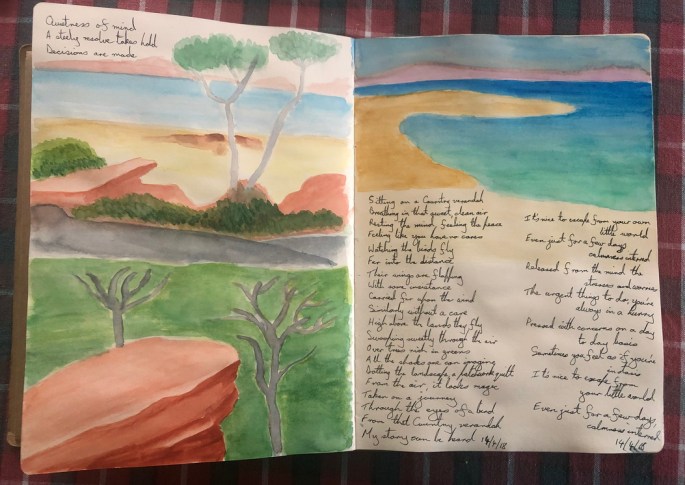 Quietness of mind
A steely resolve takes hold
Decisions are made
Sitting on a Country verandah
Breathing in that sweet, clean air
Resting the mind, feeling the peace
Feeling like you have no cares
Watching the birds fly
Far into the distance
Their wings are fluffing
With some resistance
Carried far upon the wind
Similarly without a care
High above the lands they fly
Swooping swiftly through the air
Over trees rich in greens
All the shades one can imagine
Dotting the landscape, a patchwork quilt
From the air, it looks magic
Taken on a journey
Through the eyes of a bird
From that Country verandah
My story can be heard 14/4/18
It's nice to escape from your own
little world
Even just for a few days
calmness interred
Released from the mind the
stresses and worries
The urgent things to do, you're
always in a hurry
Pressed with concerns on a day
to day basis
Sometimes you feel as if you're
in
It's nice to escape from
your little world
Even just for a few days,
calmness interred
14/4/18